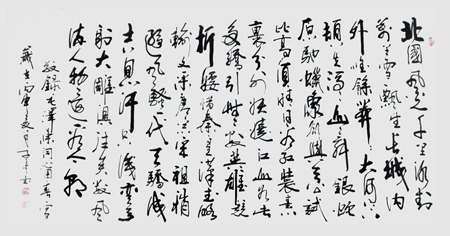 北國風光千里冰封
萬里雪飄望長城內
外惟餘莽莽大河上下
頓失滔滔山舞銀蛇
原馳蠟象欲與天公試
比高須晴日看紅裝素
裹分外妖嬈江山如此
多嬌引無數英雄競
折腰惜秦皇漢武略
輸文采唐宗宋祖稍
遜風騷一代天驕成
吉思汗只識彎弓
射大雕俱往矣數風
流人物還看今朝
敬錄毛澤東同志雪
歲在丙申夏月